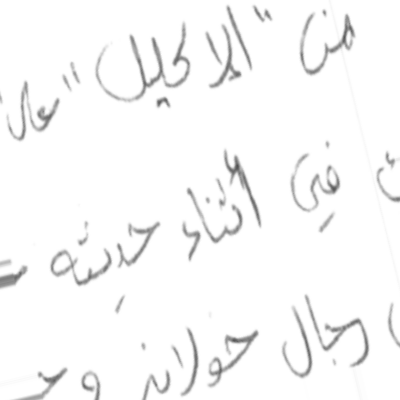 من "الإكليل" قال
في أثناء حديثه
رجال خولان و